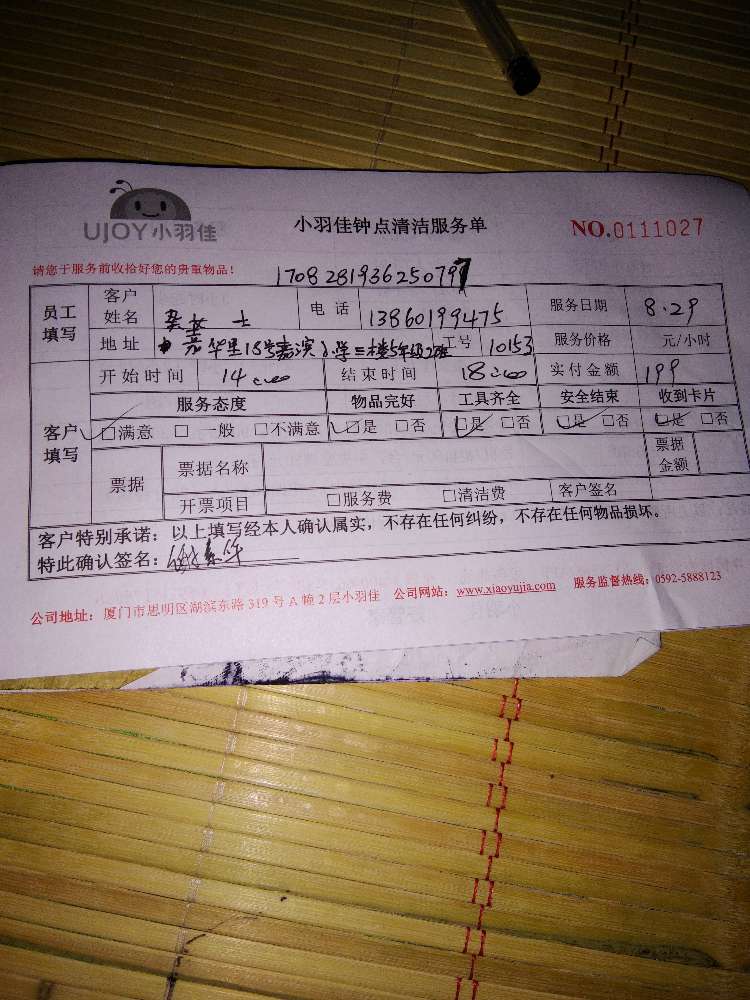 UJOY小羽佳
小羽佳钟点清洁服务单
NO.0111027
请您于服务前收拾好您的贵重物品！
员工填写 客户姓名 女士 电话 13860199475 服务日期 8.29
地址 华里18号嘉滨小学三楼5年级2班 工号 10153 服务价格 元/小时
客户填写 开始时间 14:00 结束时间 18:00 实付金额 199
服务态度 物品完好 工具齐全 安全结束 收到卡片
□满意 □一般 □不满意 □是 □否 □是 □否 □是 □否 □是 □否
票据 票据名称 票据金额
开票项目 □服务费 □清洁费 客户签名
客户特别承诺：以上填写经本人确认属实，不存在任何纠纷，不存在任何物品损坏。
特此确认签名：
公司地址：厦门市思明区湖滨东路319号A幢2层小羽佳 公司网站：www.xiaoyujia.com 服务监督热线：0592-5888123